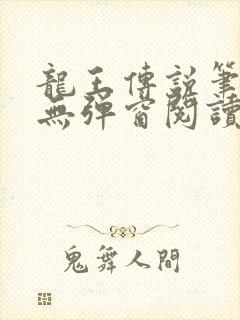 龍王傳說筆
無彈窗閱讀
鬼舞人間